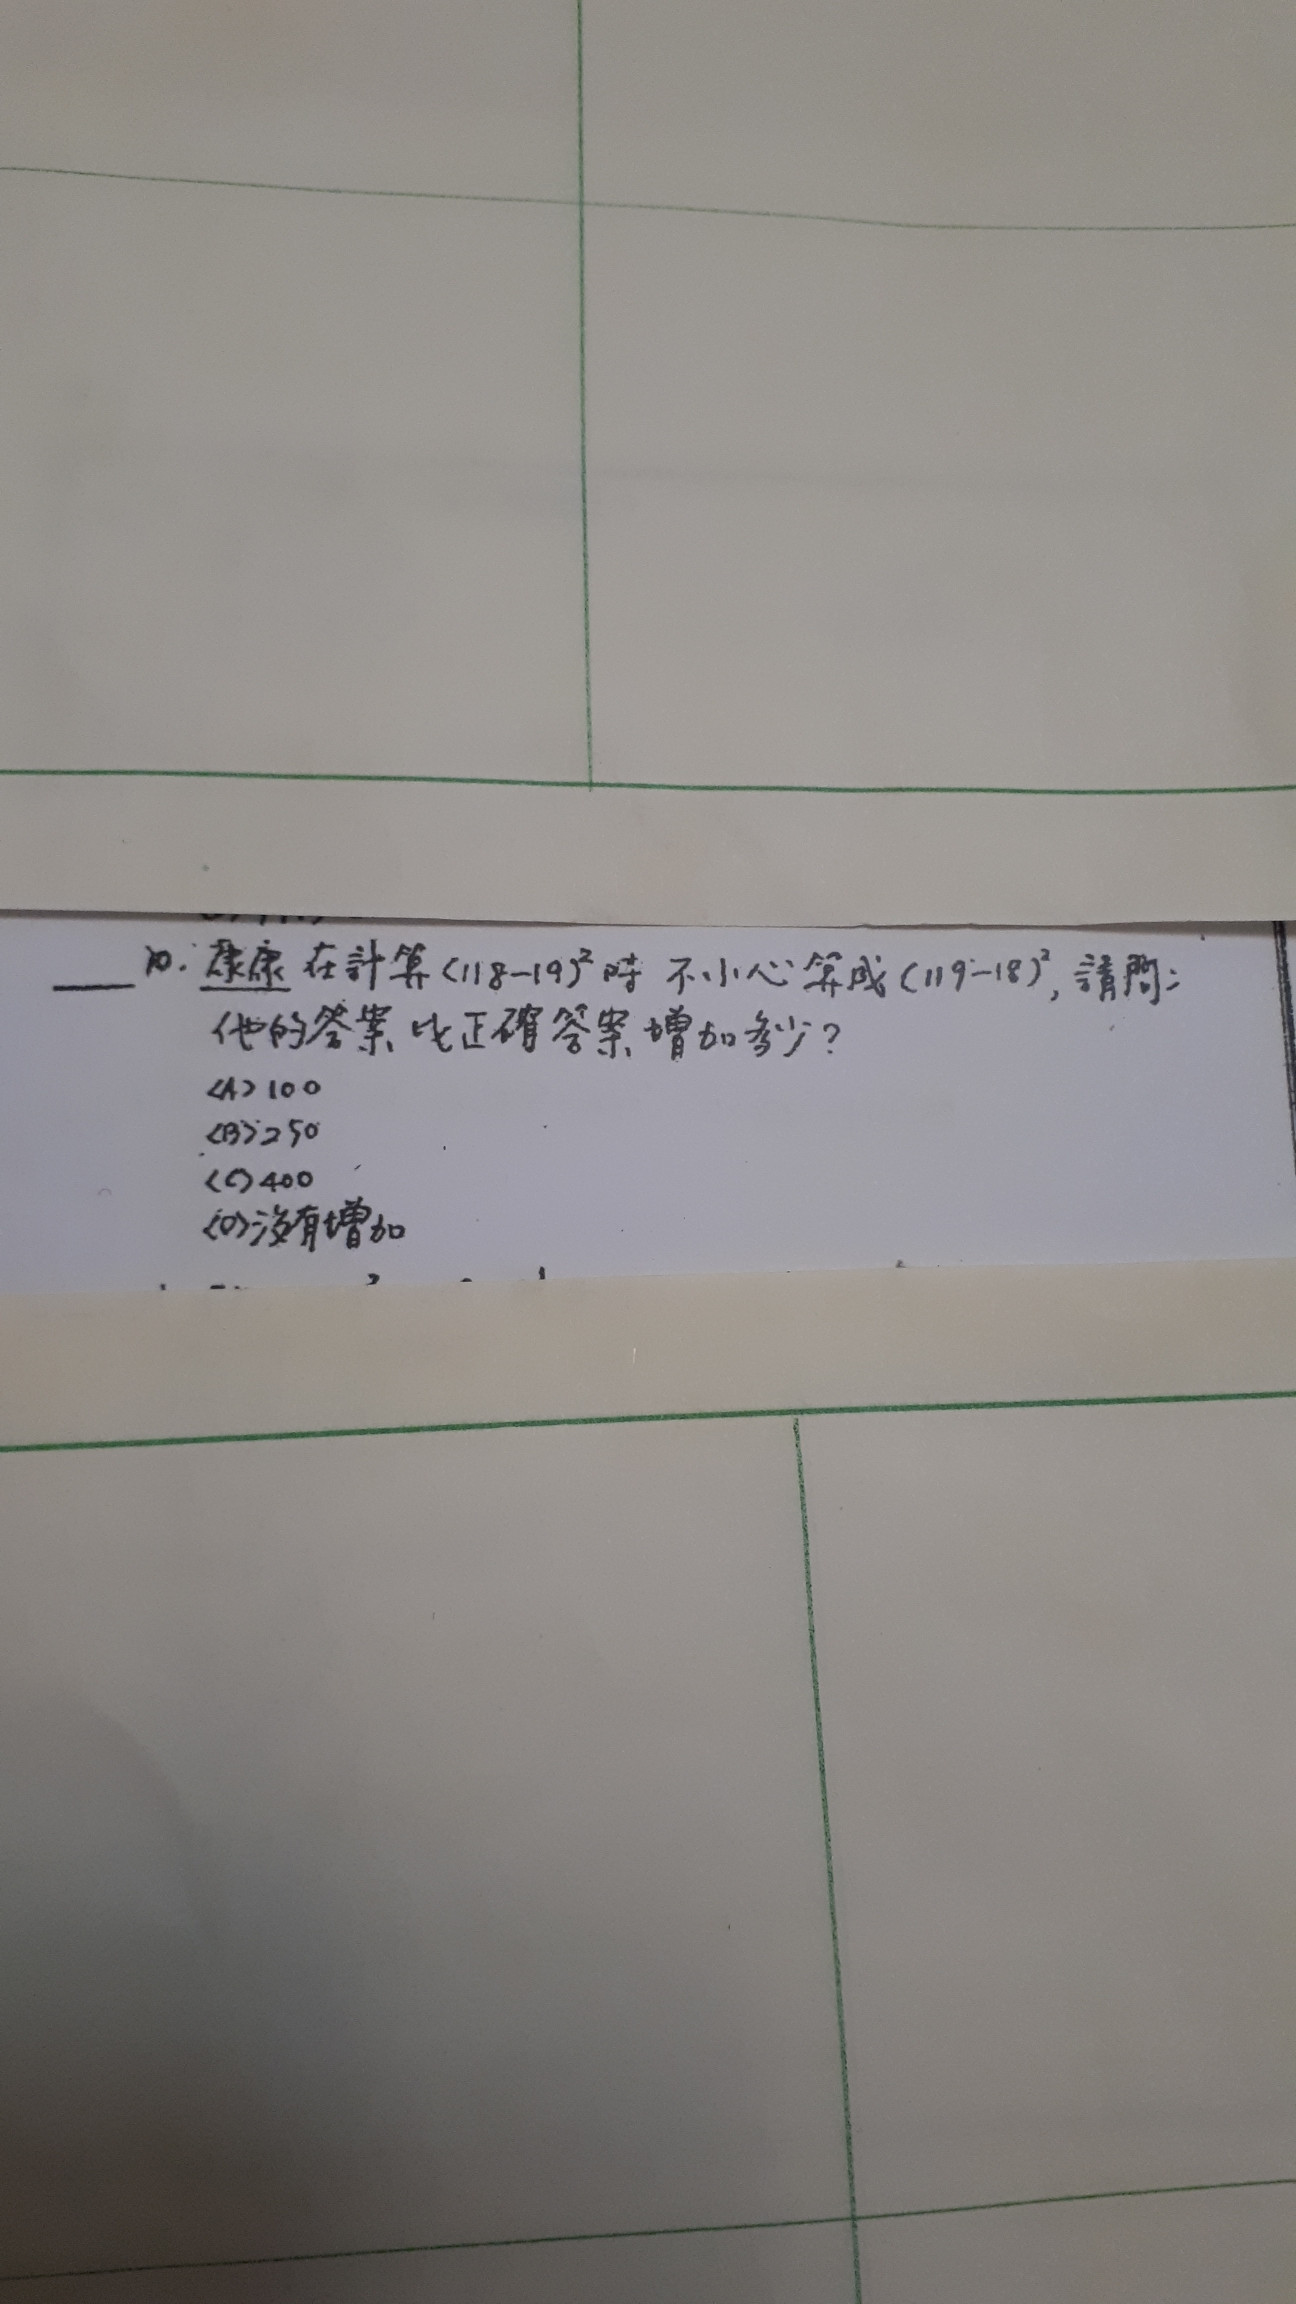 10. 康康在計算(118-19)²時不小心算成(119-18)², 請問:
他的答案比正確答案增加多少?
(A) 100
(B) 250
(C) 400
(D) 沒有增加